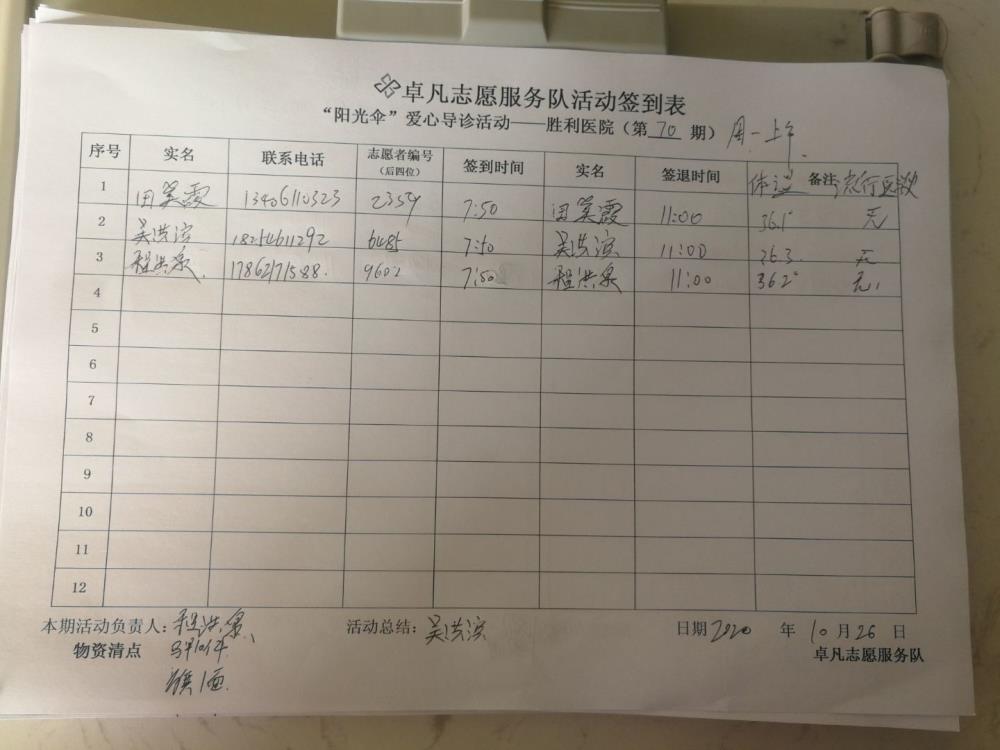 卓凡志愿服务队活动签到表
“阳光伞”爱心导诊活动——胜利医院（第 70 期） 周一上午
序号 实名 联系电话 志愿者编号（后四位） 签到时间 实名 签退时间 体温 备注 流行区史
1 田笑霞 13406110323 2359 7:50 田笑霞 11:00 36.1° 无
2 吴洪滨 18254611292 6485 7:50 吴洪滨 11:00 36.3 无
3 程洪泉 17862171588 9602 7:50 程洪泉 11:00 36.2° 无
4
5
6
7
8
9
10
11
12
本期活动负责人：程洪泉 活动总结：吴洪滨 日期 2020 年 10 月 26 日
物资清点 卓凡志愿服务队
旗1面